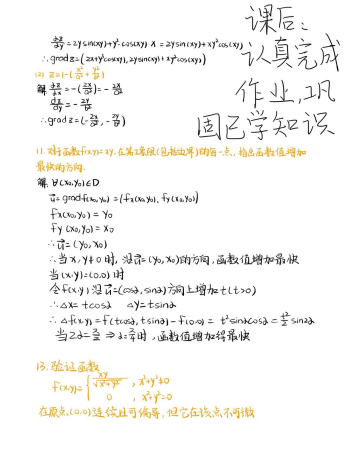 课后:
认真完成
作业,巩
固已学知识
∂z/∂y = 2y sin(xy) + y² cos(xy)·x = 2y sin(xy) + xy² cos(xy)
∴ grad z = (2x+y³cos(xy), 2y sin(xy) + xy² cos(xy))
(2) z = 1-(x²/a² + y²/b²)
解 ∂z/∂x = -(2x/a²) = -2x/a²
∂z/∂y = -2y/b²
∴ grad z = (-2x/a², -2y/b²)
11. 对函数f(x,y)=xy, 在第Ⅰ象限(包括边界)的每一点, 指出函数值增加
最快的方向.
解 ∀(x₀,y₀)∈D
u⃗ = grad f(x₀,y₀) = (fx(x₀,y₀), fy(x₀,y₀))
fx(x₀,y₀) = y₀
fy(x₀,y₀) = x₀
∴ u⃗ = (y₀, x₀)
∴ 当x,y≠0时, 沿u⃗=(y₀,x₀)的方向, 函数值增加最快
当(x,y)=(0,0)时
令f(x,y)沿u⃗=(cosα, sinα)方向上增加t(t>0)
∴ Δx = t cosα Δy = t sinα
∴ Δf(x,y) = f(t cosα, t sinα) - f(0,0) = t² sinα cosα = t²/2 sin2α
当2α = π/2 ⇒ α = π/4时, 函数值增加得最快
13. 验证函数
f(x,y) = { xy/√(x²+y²) , x²+y²≠0
0 , x²+y²=0
在原点(0,0)连续且可偏导, 但它在该点不可微